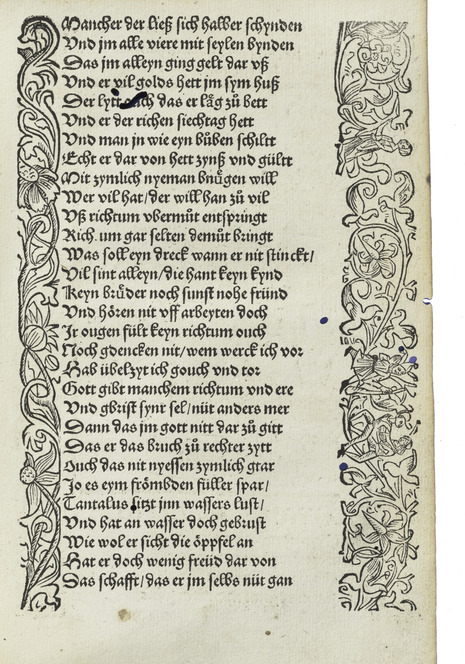 Mancher der ließ sich halber schynden
Vnd jm alle viere mit seylen bynden
Das jm alleyn ging gelt dar vß
Vnd er vil golds hett jm sym huß
Der lytt das er läg zů bett
Vnd er der richen siechtag hett
Vnd man jn wie eyn bůben schiltt
Echt er dar von hett zynß vnd gültt
Mit zymlich nyeman bnůgen will
Wer vil hat / der will han zů vil
Vß richtum vbermůt entspringt
Richtum gar selten demůt bringt
Was soll eyn dreck wann er nit stinckt /
Vil sint alleyn / die hant keyn kynd
Keyn brůder noch sunst nohe fründ
Vnd hören nit vff arbeyten doch
Jr ougen fült keyn richtum ouch
Noch gdencken nit / wem werck ich vor
Hab übelzyt ich gouch vnd tor
Gott gibt manchem richtum vnd ere
Vnd gbrist synr sel / nüt anders mer
Dann das jm gott nitt dar zů gitt
Das er das bruch zů rechter zytt
Ouch das nit nyessen zymlich gtar
Jo es eym frömbden füller spar /
Tantalus sitzt jnn wassers lust /
Vnd hat an wasser doch gebrust
Wie wol er sicht die öppfel an
Hat er doch wenig freüd dar von
Das schafft / das er jm selbs nüt gan